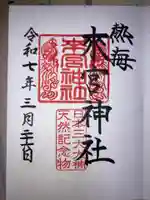 熱海
來宮神社
令和七年三月二十日
來宮神社
日本三大大楠
天然記念物